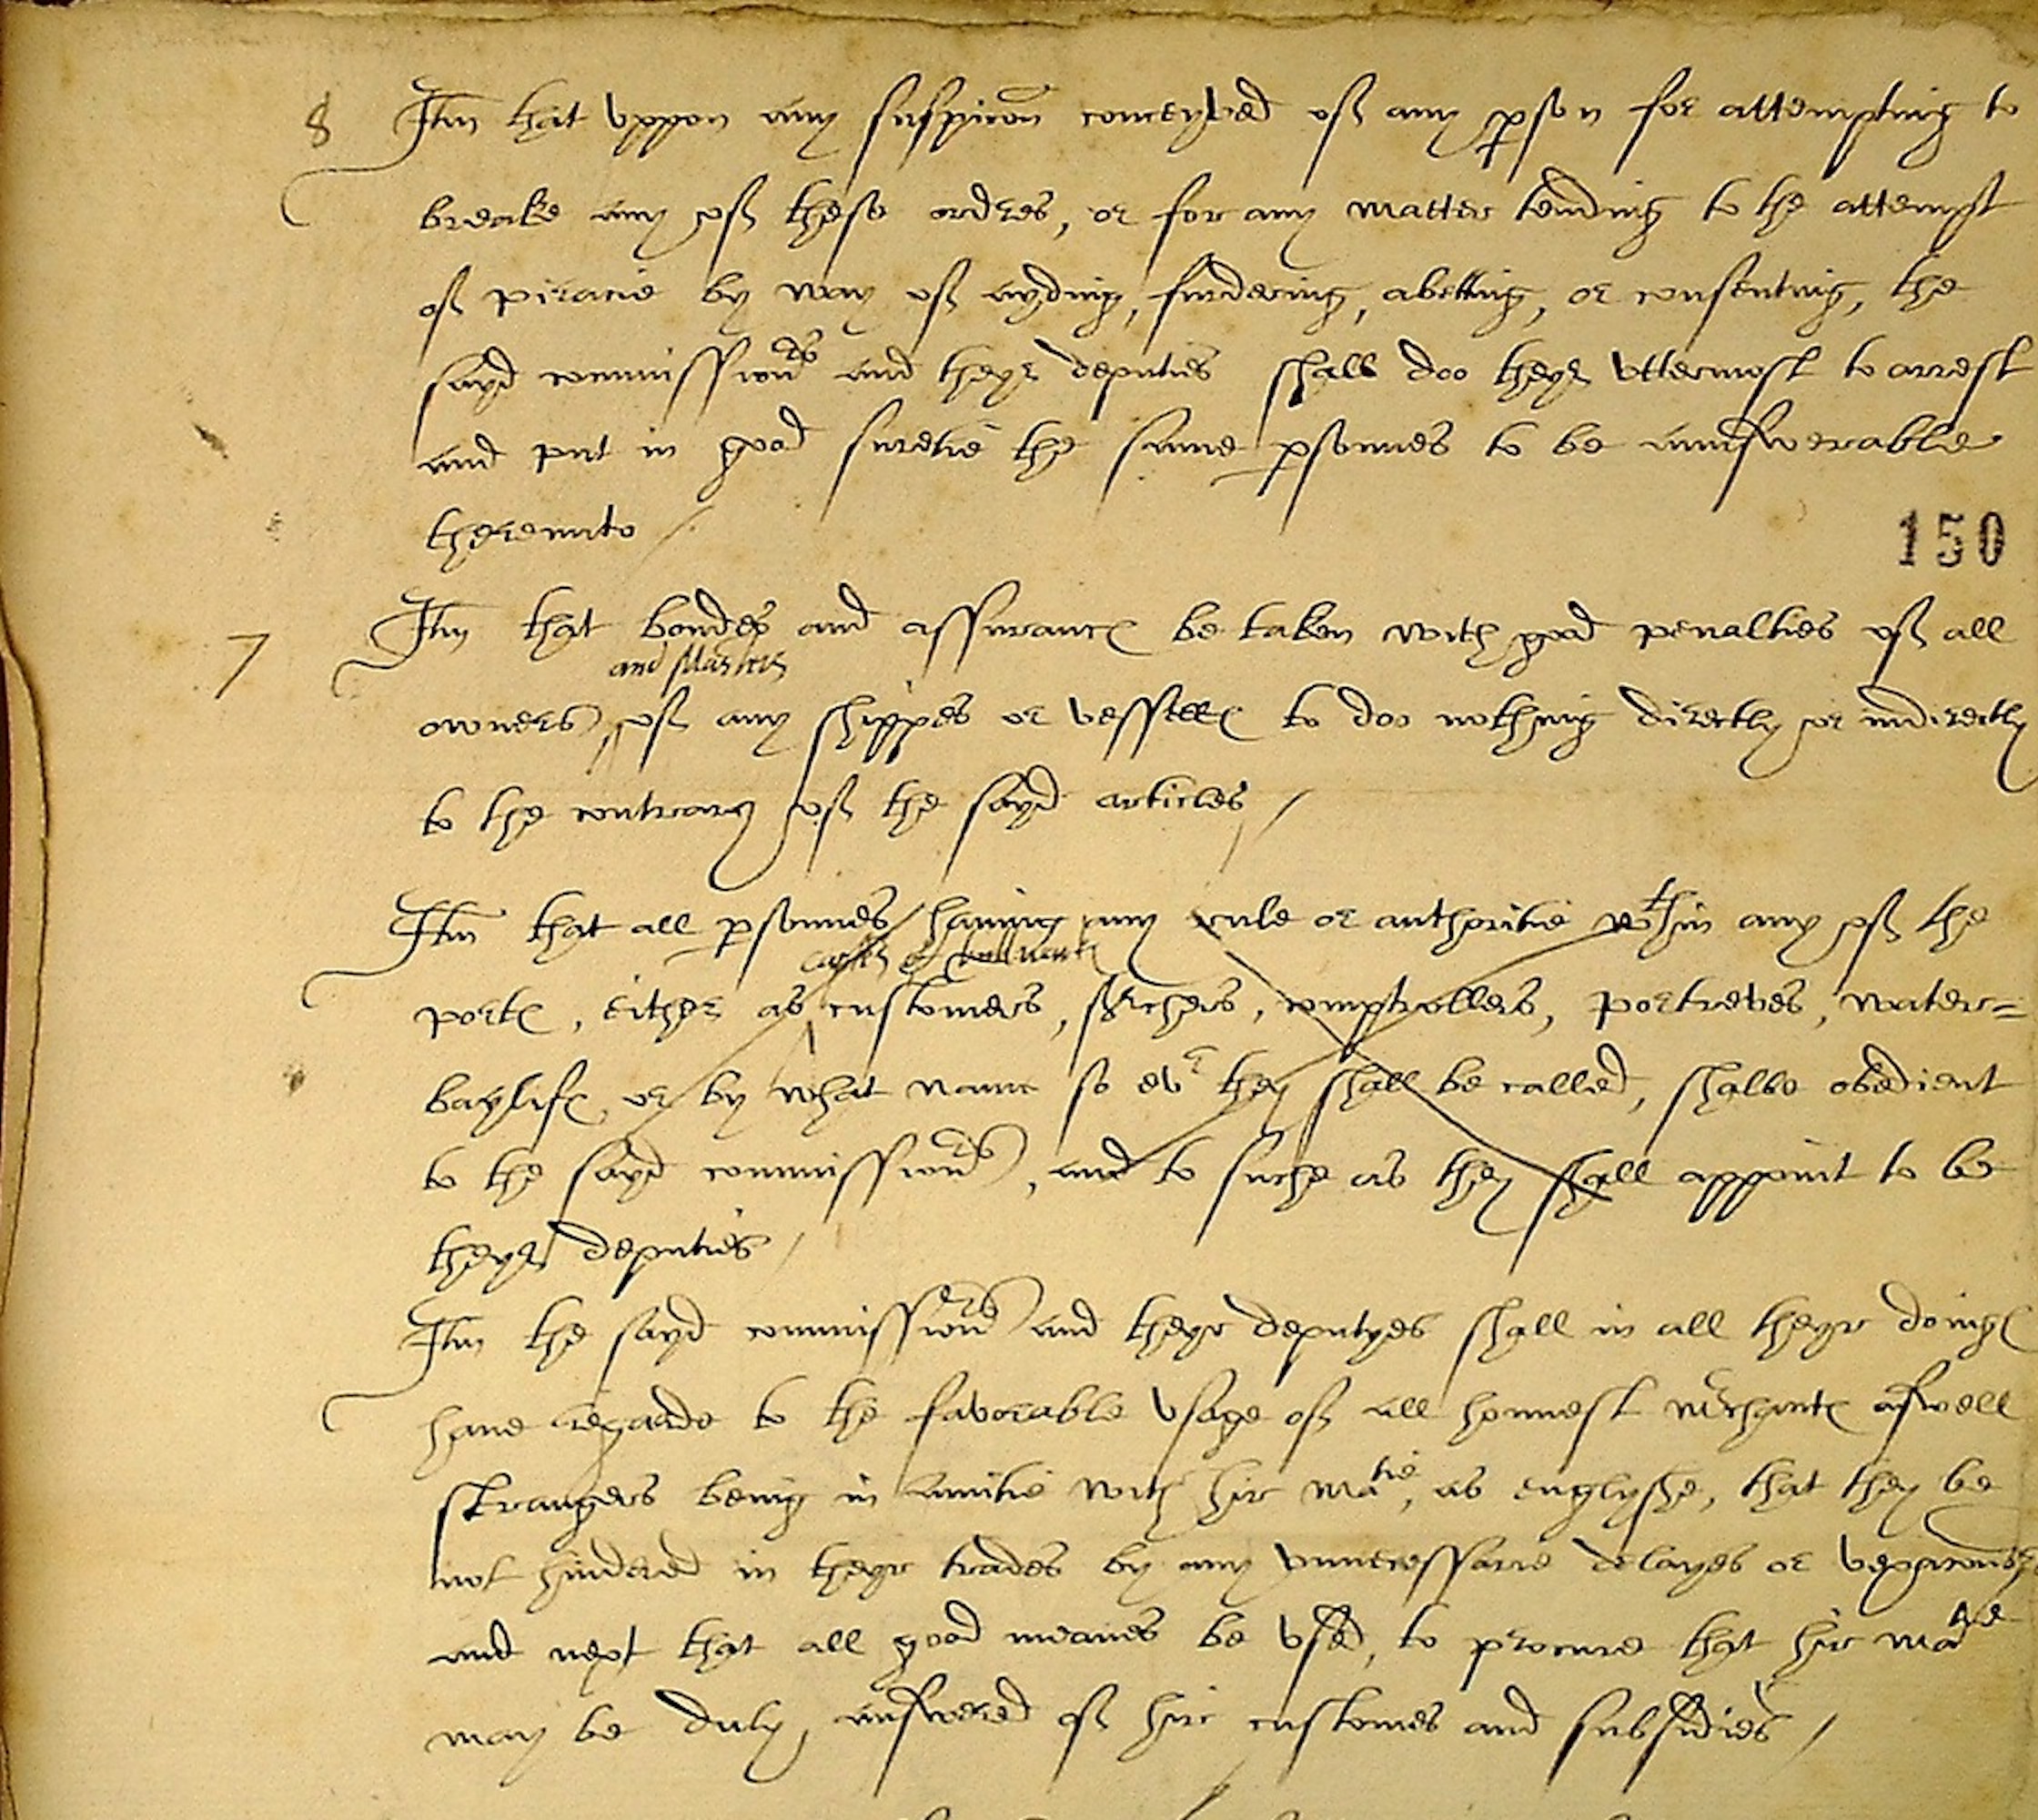 8 Itm that vppon any suspicon conceyved of any pson for attempting to
breake any of these ordres, or for any matter tending to the attempt
of piracie by way of ayding, furdering, abetting, or consenting, the
sayd commissionrs and theyr deputies shall doo theyr vttermost to arrest
and put in good suretie the same psonnes to be aunswerable
therunto /
150
7 Itm that bondes and assurances be taken with good penalties of all
and Masters
owners of any shippes or vesselles to doo nothing directly or indirectly
to the contrary of the sayd articles /
Itm that all psonnes having any rule or authoritie wthin any of the
portes, either as customers, serchers, comptrollers, portreves, water=
baylifes, or by what name so evr they shall be called, shalbe obedient
to the sayd commissionrs, and to suche as they shall appoint to be
theyr deputies /
Itm the sayd commissionrs and theyr deputyes shall in all theyr doinges
have regarde to the favorable vsage of all honnest mrchantes aswell
strangers being in amitie with hir Matie, as englyshe, that they be
not hindered in theyr trades by any vnnecessarie delayes or vexacones
and next that all good meanes be vsed, to procure that hir Matie
may be duly answered of hir customes and subsidies /